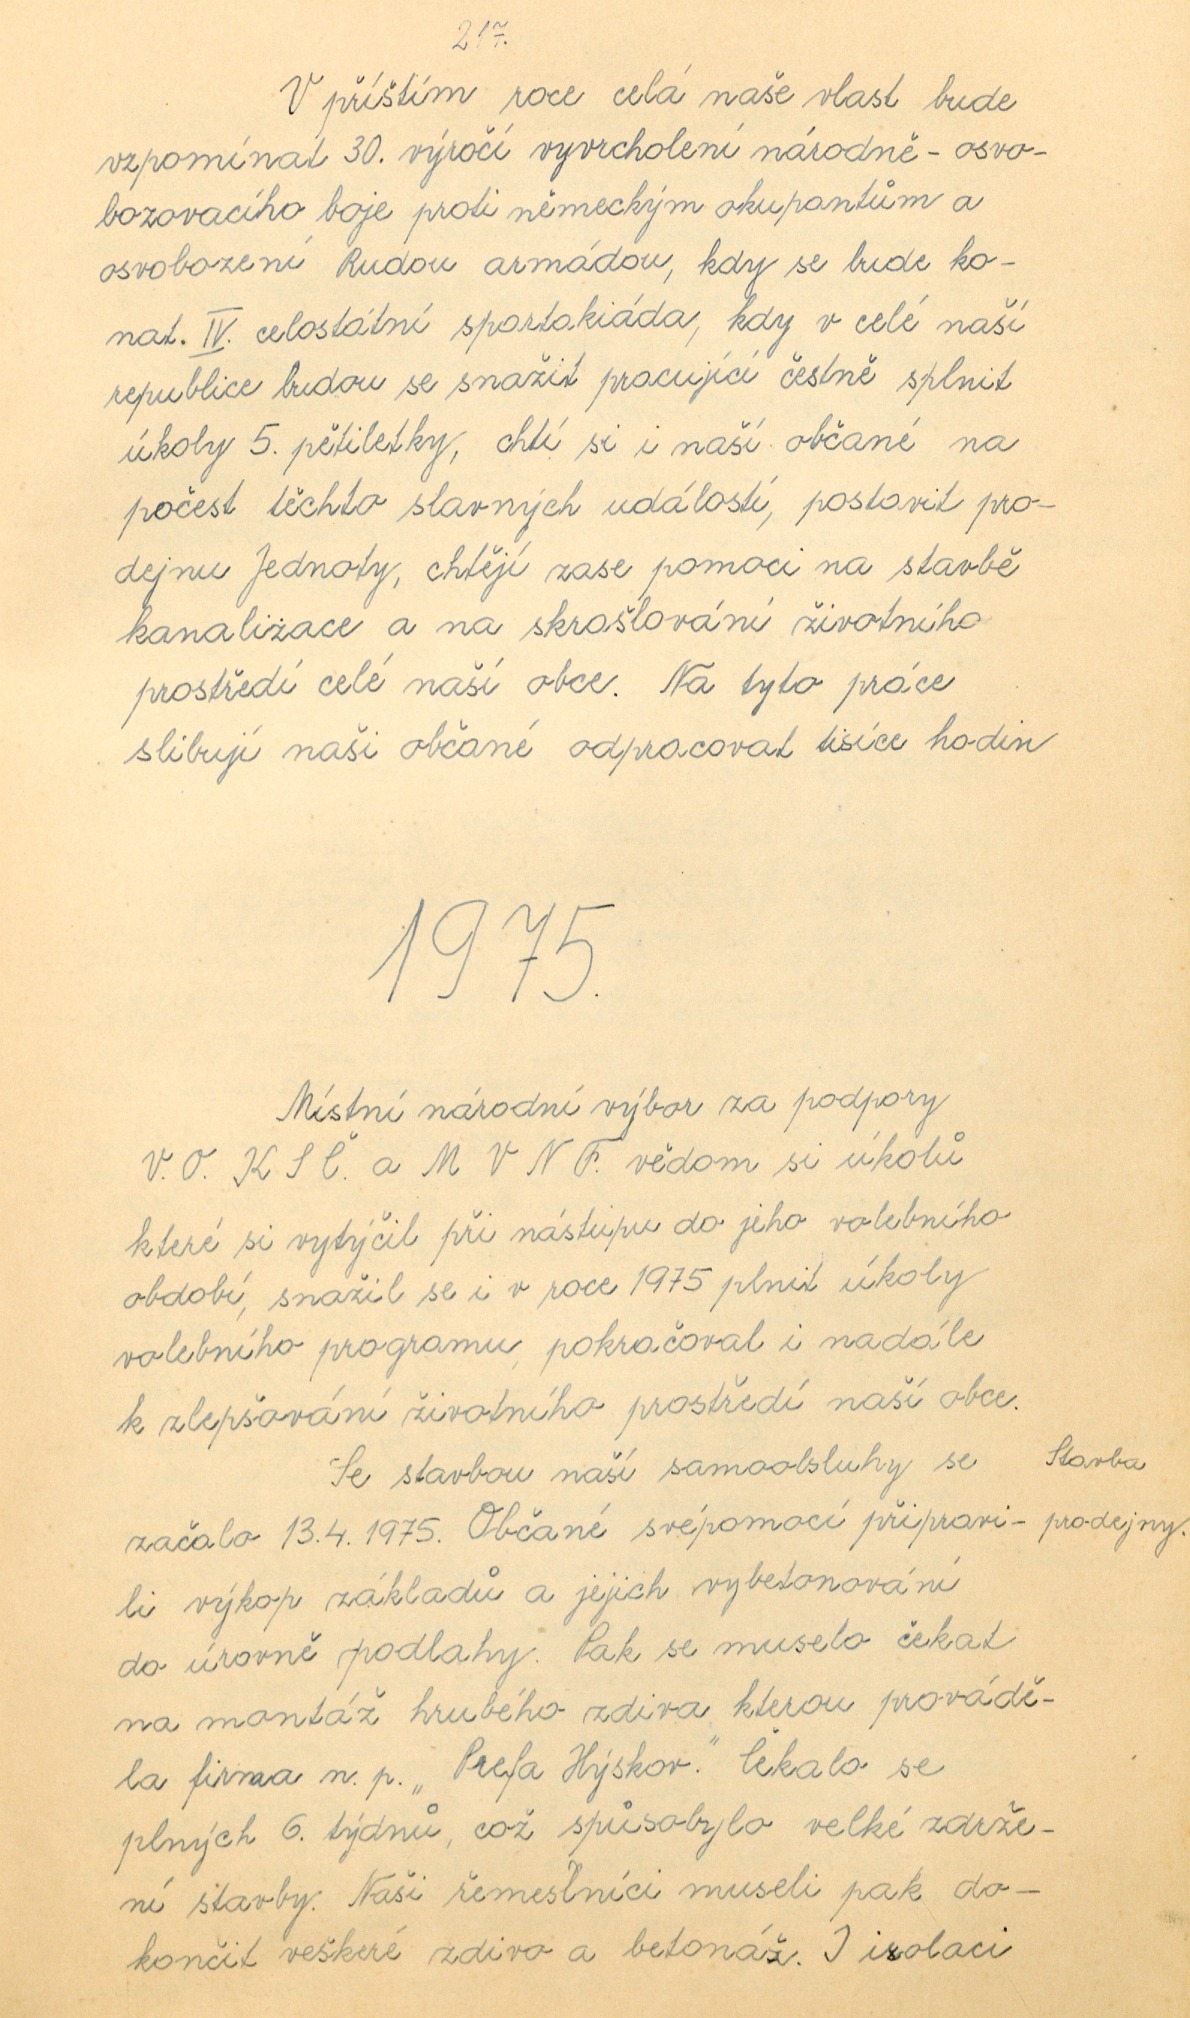 217.
V příštím roce celá naše vlast bude
vzpomínat 30. výročí vyvrcholení národně - osvo-
bozovacího boje proti německým okupantům a
osvobození Rudou armádou, kdy se bude ko-
nat. IV. celostátní spartakiáda, kdy v celé naší
republice budou se snažit pracující čestně splnit
úkoly 5. pětiletky, chtí si i naší občané na
počest těchto slavných událostí, postavit pro-
dejnu Jednoty, chtějí zase pomoci na stavbě
kanalizace a na skrašlování životního
prostředí celé naší obce. Na tyto práce
slibují naši občané odpracovat tisíce hodin
1975.
Místní národní výbor za podpory
V. O. K S Č. a M V N F. vědom si úkolů
které si vytýčil při nástupu do jeho volebního
období, snažil se i v roce 1975 plnit úkoly
volebního programu, pokračoval i nadále
k zlepšování životního prostředí naší obce.
Se stavbou naší samoobsluhy se
Stavba
začalo 13.4. 1975. Občané svépomocí připravi-
prodejny.
li výkop základů a jejich vybetonování
do úrovně podlahy. Pak se muselo čekat
na montáž hrubého zdiva, kterou provádě-
la firma n. p. „ Prefa Hýskov." Čekalo se
plných 6. týdnů, což spůsobylo velké zdrže-
ní stavby. Naši řemeslníci museli pak do-
končit veškeré zdivo a betonáž. I izolaci